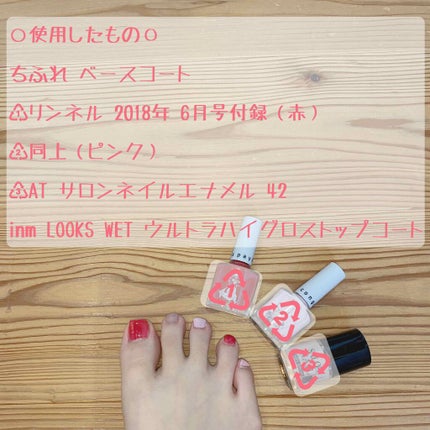 ○使用したもの○
ちふれ ベースコート
♳リンネル 2018年 6月号付録（赤）
♴同上（ピンク）
♵AT サロンネイルエナメル 42
inm LOOKS WET ウルトラハイグロストップコート
1
2
3